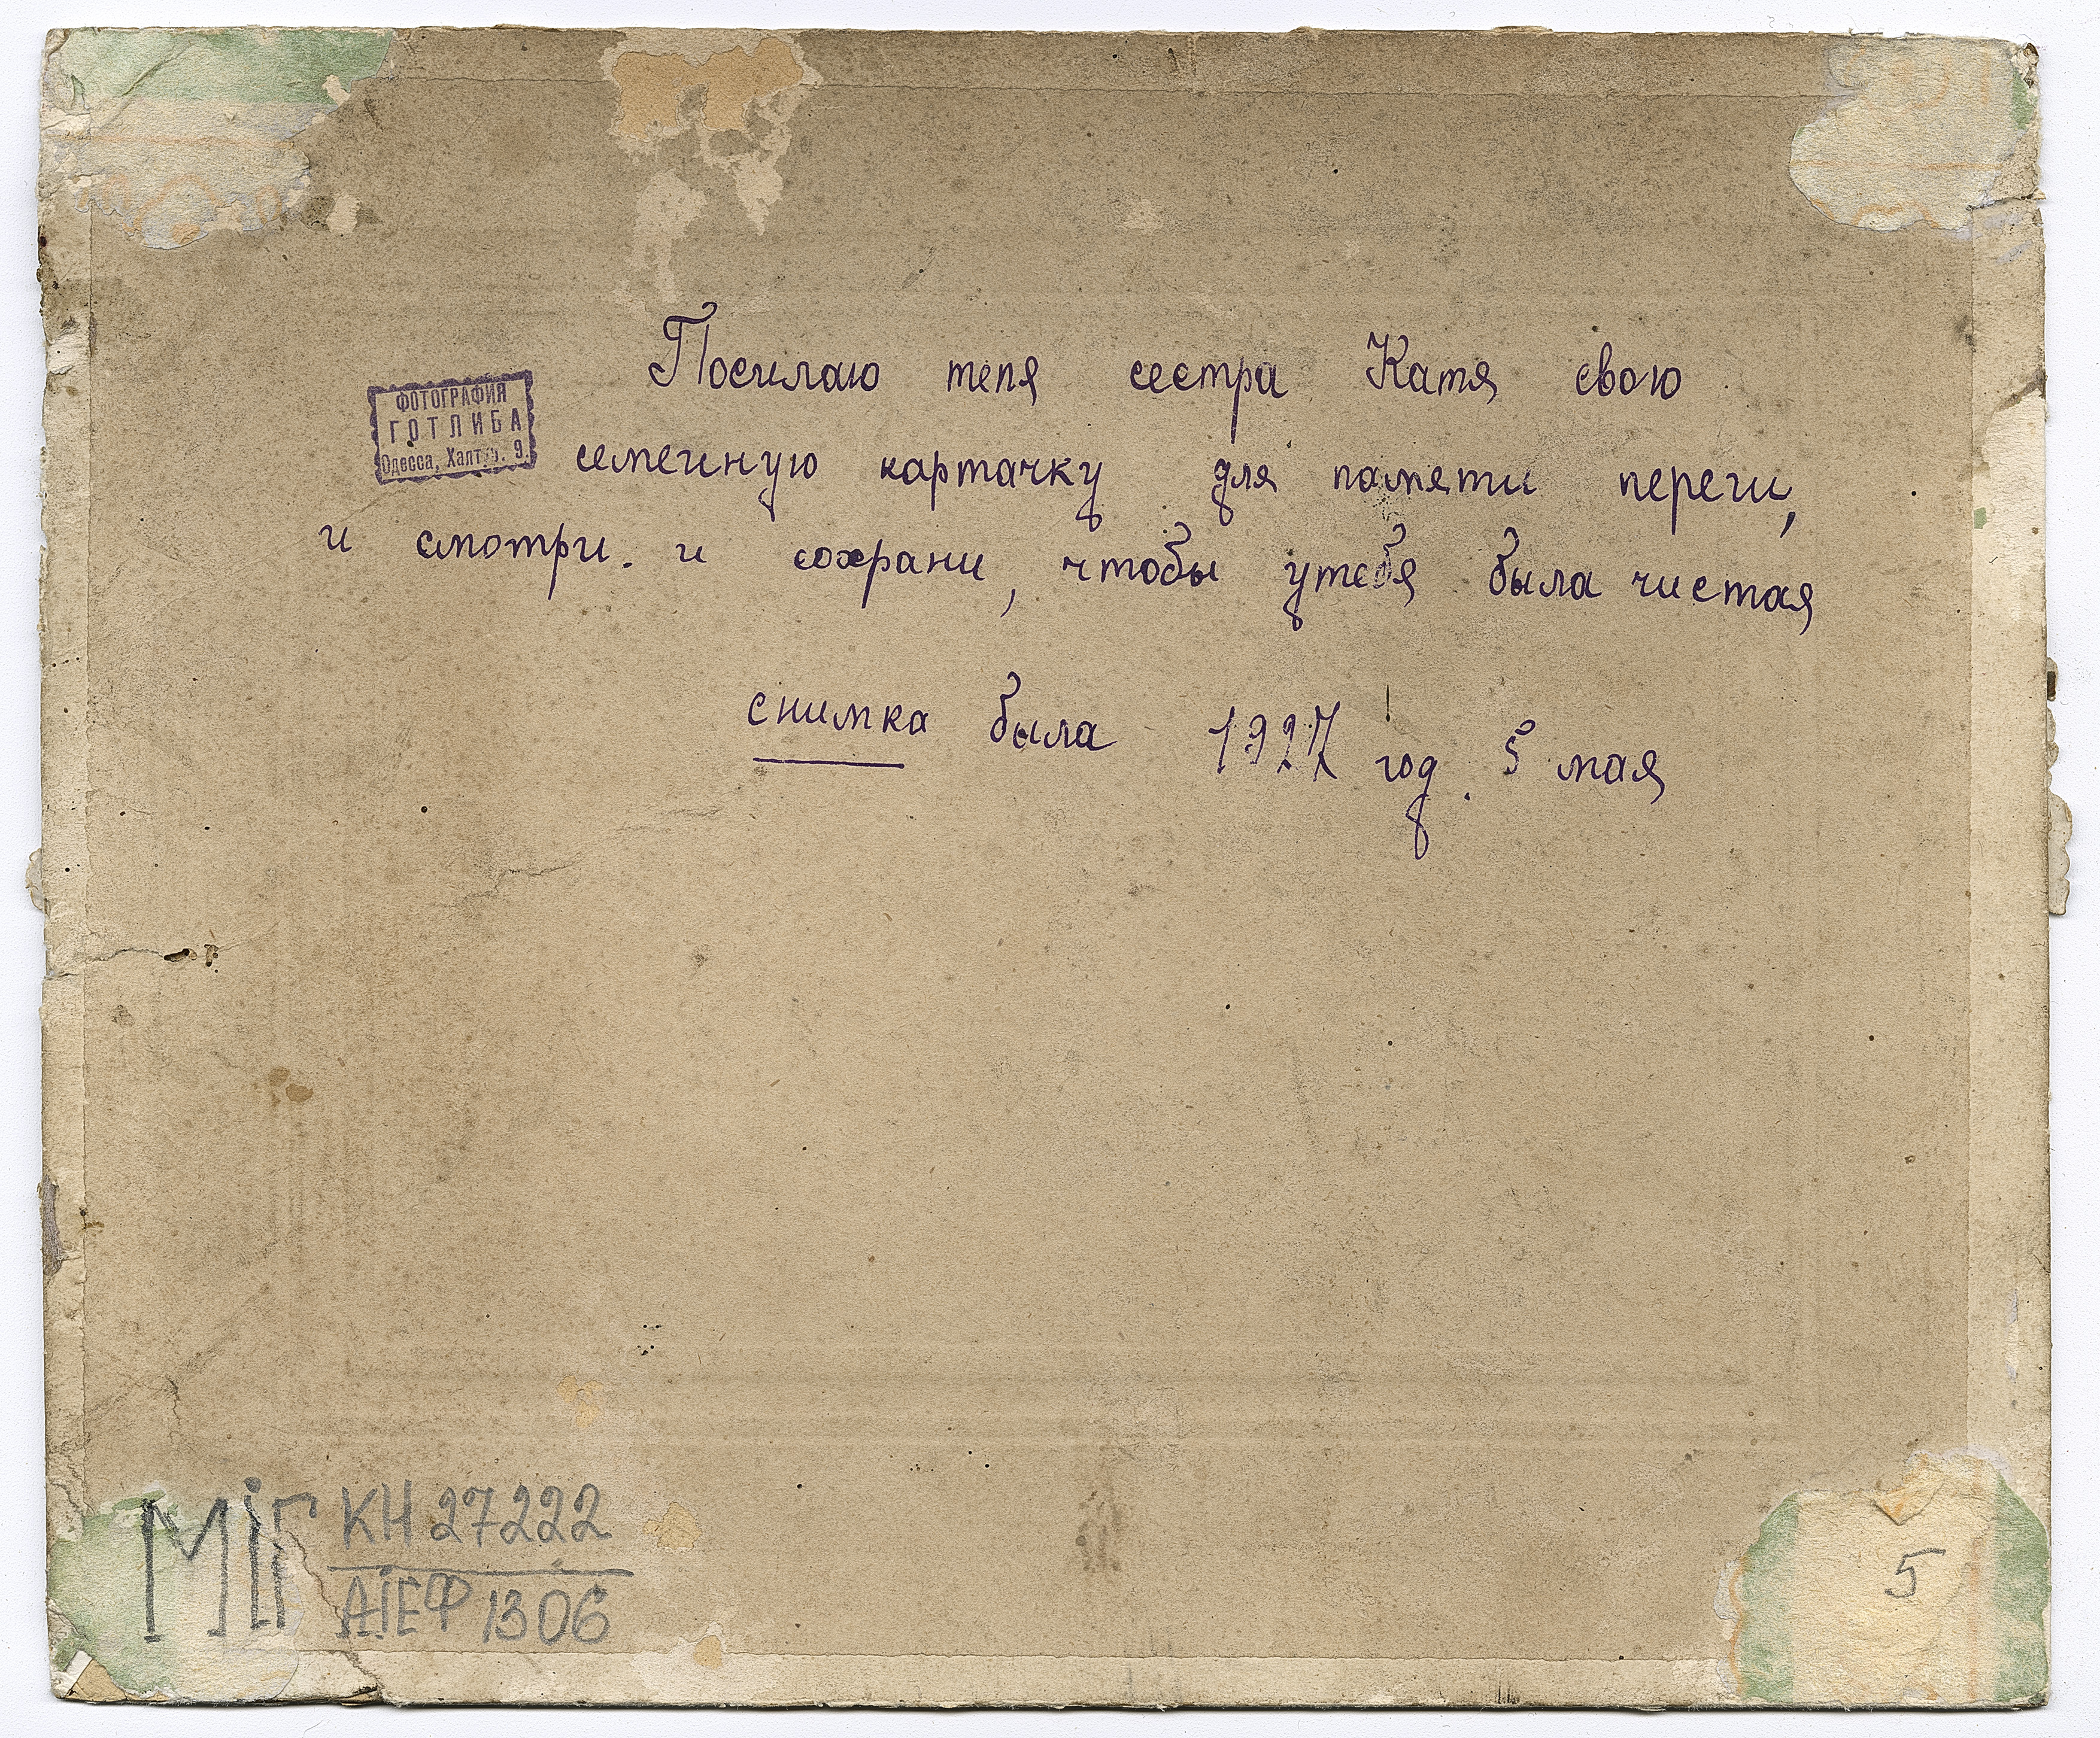 Посилаю тепя сестра Катя свою
ФОТОГРАФИЯ
ГОТЛИБА
Одесса, Халтур. 9.
семеиную картачку для памяти переги,
и смотри. и сохрани, чтобы утебя была чистая
снимка была 1927 год. 5 мая
МІГ КН 27222
АІЕФ 1306
5